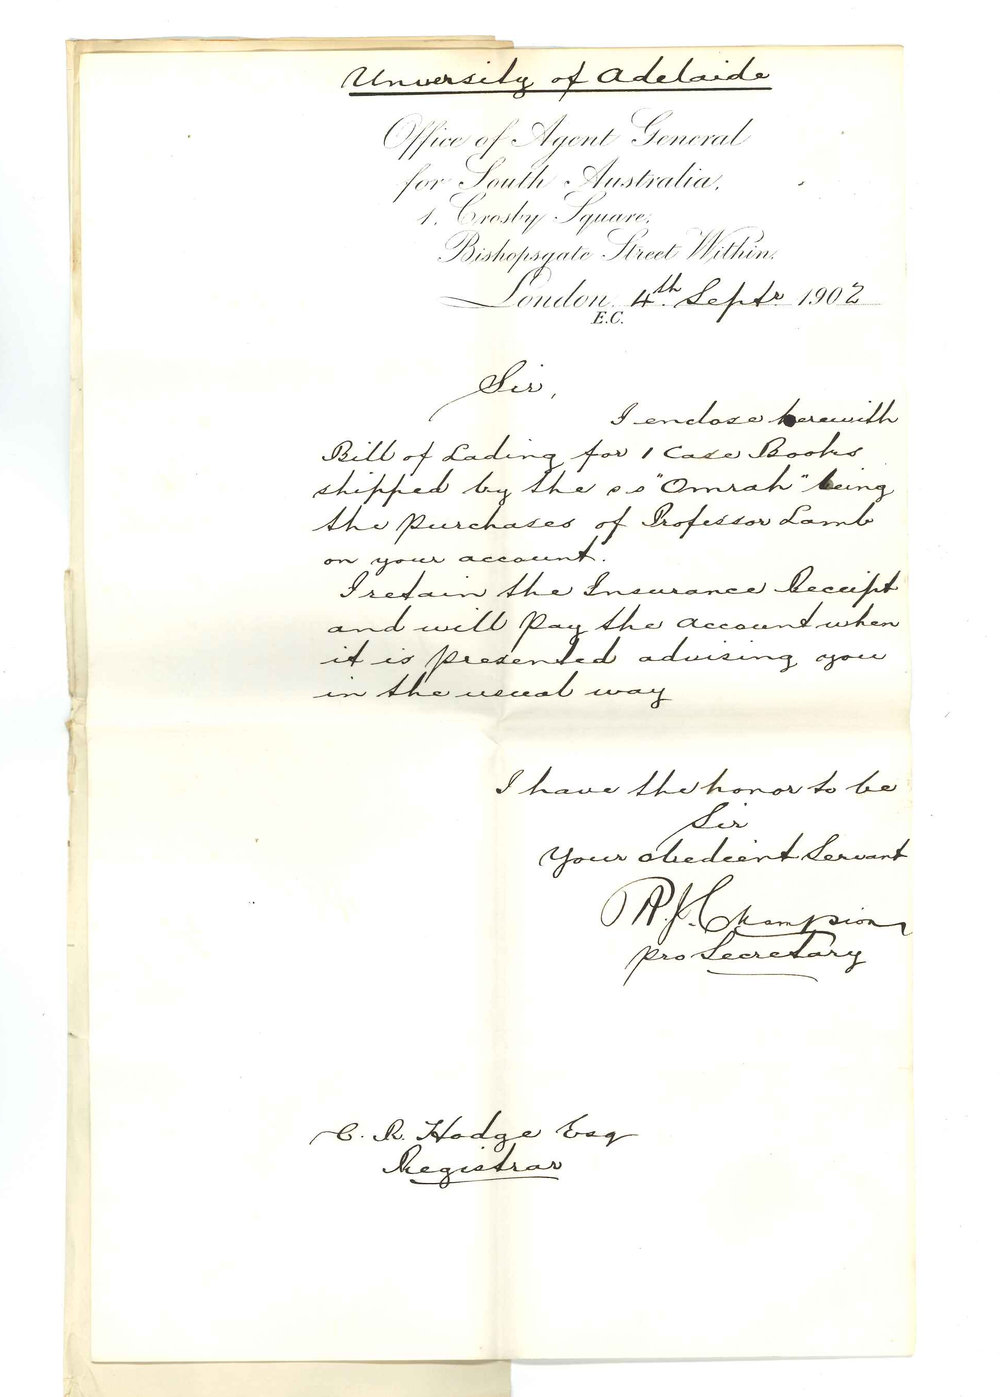 University of Adelaide
Office of Agent General
for South Australia,
1, Crosby Square,
Bishopsgate Street Within,
London, 4th. Septr. 1902
E.C.
Sir,
I enclose herewith
Bill of Lading for 1 Case Books
shipped by the s s "Omrah" being
the purchases of Professor Lamb
on your account.
I retain the Insurance Receipt
and will pay the account when
it is presented advising you
in the usual way
I have the honor to be
Sir
Your obedient Servant
A. J. Champion
pro Secretary
C. R. Hodge Esq
Registrar